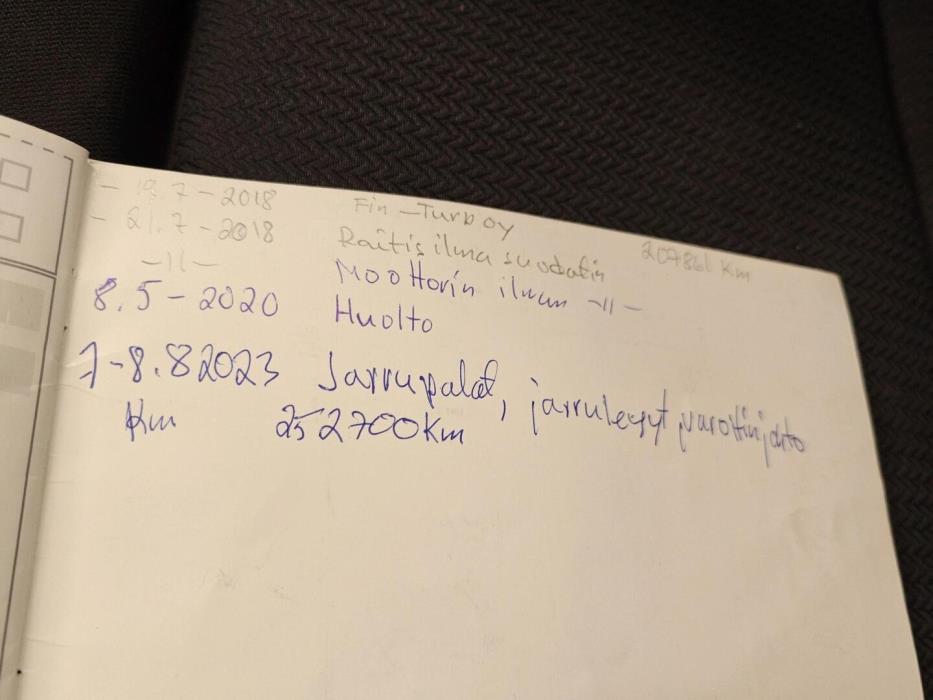 - 19.7-2018 Fin-Turb oy 207861 Km
- 21.7-2018 Raitis ilma suodatin
-11- Moottorin ilman -11-
8.5-2020 Huolto
7-8.8 2023 Jarrupalat, jarrulevyt, varoitinjohto
Km 252700 km